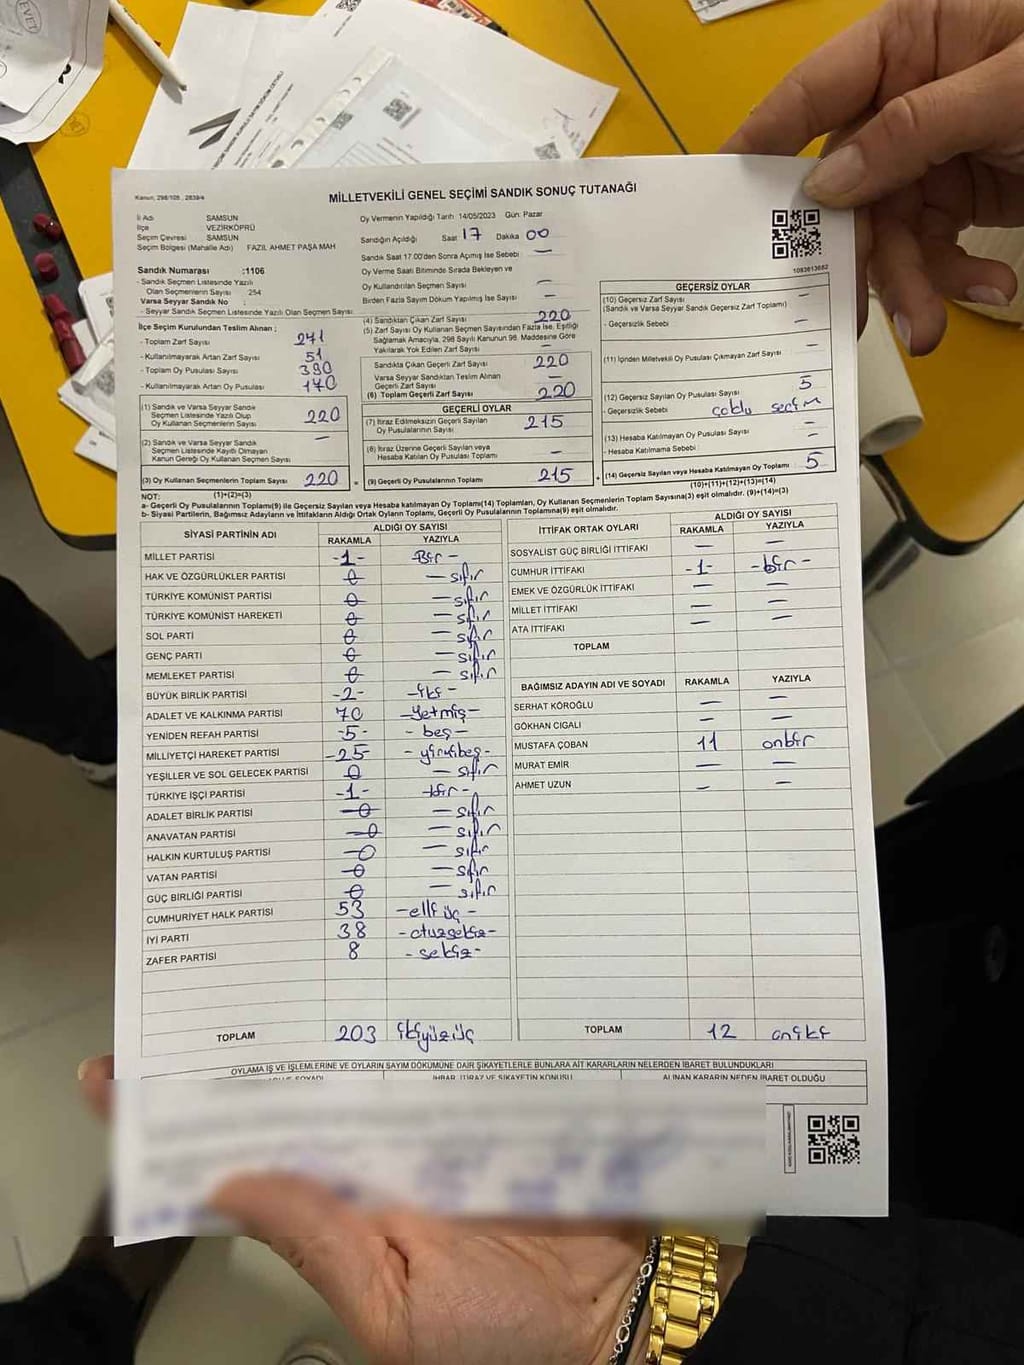 Kanun: 298/105 , 2839/4
MİLLETVEKİLİ GENEL SEÇİMİ SANDIK SONUÇ TUTANAĞI
İl Adı SAMSUN
İlçe VEZİRKÖPRÜ
Seçim Çevresi SAMSUN
Seçim Bölgesi (Mahalle Adı) FAZIL AHMET PAŞA MAH
Oy Vermenin Yapıldığı Tarih 14/05/2023 Gün: Pazar
Sandığın Açıldığı Saat 17 Dakika 00
Sandık Saat 17.00'den Sonra Açılmış İse Sebebi —
Oy Verme Saati Bitiminde Sırada Bekleyen ve
Oy Kullandırılan Seçmen Sayısı —
Birden Fazla Sayım Döküm Yapılmış İse Sayısı —
1083613682
Sandık Numarası :1106
- Sandık Seçmen Listesinde Yazılı
Olan Seçmenlerin Sayısı 254
Varsa Seyyar Sandık No :
- Seyyar Sandık Seçmen Listesinde Yazılı Olan Seçmen Sayısı
İlçe Seçim Kurulundan Teslim Alınan ;
- Toplam Zarf Sayısı 271
- Kullanılmayarak Artan Zarf Sayısı 51
- Toplam Oy Pusulası Sayısı 390
- Kullanılmayarak Artan Oy Pusulası 170
(1) Sandık ve Varsa Seyyar Sandık
Seçmen Listesinde Yazılı Olup
Oy Kullanan Seçmenlerin Sayısı 220
(2) Sandık ve Varsa Seyyar Sandık
Seçmen Listesinde Kayıtlı Olmayan
Kanun Gereği Oy Kullanan Seçmen Sayısı —
(3) Oy Kullanan Seçmenlerin Toplam Sayısı 220
(1)+(2)=(3)
(4) Sandıktan Çıkan Zarf Sayısı 220
(5) Zarf Sayısı Oy Kullanan Seçmen Sayısından Fazla İse, Eşitliği
Sağlamak Amacıyla, 298 Sayılı Kanunun 98. Maddesine Göre
Yakılarak Yok Edilen Zarf Sayısı —
Sandıkta Çıkan Geçerli Zarf Sayısı 220
Varsa Seyyar Sandıktan Teslim Alınan
Geçerli Zarf Sayısı —
(6) Toplam Geçerli Zarf Sayısı 220
GEÇERLİ OYLAR
(7) İtiraz Edilmeksizin Geçerli Sayılan
Oy Pusulalarının Sayısı 215
(8) İtiraz Üzerine Geçerli Sayılan veya
Hesaba Katılan Oy Pusulası Toplamı —
(9) Geçerli Oy Pusulalarının Toplamı 215
GEÇERSİZ OYLAR
(10) Geçersiz Zarf Sayısı —
(Sandık ve Varsa Seyyar Sandık Geçersiz Zarf Toplamı)
- Geçersizlik Sebebi —
(11) İçinden Milletvekili Oy Pusulası Çıkmayan Zarf Sayısı —
(12) Geçersiz Sayılan Oy Pusulası Sayısı 5
- Geçersizlik Sebebi çoklu seçim
(13) Hesaba Katılmayan Oy Pusulası Sayısı —
- Hesaba Katılmama Sebebi —
(14) Geçersiz Sayılan veya Hesaba Katılmayan Oy Toplamı 5
(10)+(11)+(12)+(13)=(14)
NOT:
a- Geçerli Oy Pusulalarının Toplamı(9) ile Geçersiz Sayılan veya Hesaba katılmayan Oy Toplamı(14) Toplamları, Oy Kullanan Seçmenlerin Toplam Sayısına(3) eşit olmalıdır. (9)+(14)=(3)
b- Siyasi Partilerin, Bağımsız Adayların ve İttifakların Aldığı Ortak Oyların Toplamı, Geçerli Oy Pusulalarının Toplamına(9) eşit olmalıdır.
SİYASİ PARTİNİN ADI ALDIĞI OY SAYISI
RAKAMLA YAZIYLA
MİLLET PARTİSİ -1- -Bir-
HAK VE ÖZGÜRLÜKLER PARTİSİ 0 —sıfır
TÜRKİYE KOMÜNİST PARTİSİ 0 —sıfır
TÜRKİYE KOMÜNİST HAREKETİ 0 —sıfır
SOL PARTİ 0 —sıfır
GENÇ PARTİ 0 —sıfır
MEMLEKET PARTİSİ 0 —sıfır
BÜYÜK BİRLİK PARTİSİ -2- -iki-
ADALET VE KALKINMA PARTİSİ 70 -Yetmiş-
YENİDEN REFAH PARTİSİ -5- -beş-
MİLLİYETÇİ HAREKET PARTİSİ -25- -yirmibeş-
YEŞİLLER VE SOL GELECEK PARTİSİ 0 —sıfır
TÜRKİYE İŞÇİ PARTİSİ -1- -bir-
ADALET BİRLİK PARTİSİ 0 —sıfır
ANAVATAN PARTİSİ 0 —sıfır
HALKIN KURTULUŞ PARTİSİ 0 —sıfır
VATAN PARTİSİ 0 —sıfır
GÜÇ BİRLİĞİ PARTİSİ 0 —sıfır
CUMHURİYET HALK PARTİSİ 53 -elli üç-
İYİ PARTİ 38 -otuzsekiz-
ZAFER PARTİSİ 8 -sekiz-
TOPLAM 203 ikiyüzüç
İTTİFAK ORTAK OYLARI ALDIĞI OY SAYISI
RAKAMLA YAZIYLA
SOSYALİST GÜÇ BİRLİĞİ İTTİFAKI — —
CUMHUR İTTİFAKI -1- -bir-
EMEK VE ÖZGÜRLÜK İTTİFAKI — —
MİLLET İTTİFAKI — —
ATA İTTİFAKI — —
TOPLAM
BAĞIMSIZ ADAYIN ADI VE SOYADI RAKAMLA YAZIYLA
SERHAT KÖROĞLU — —
GÖKHAN CIGALI — —
MUSTAFA ÇOBAN 11 onbir
MURAT EMİR — —
AHMET UZUN — —
TOPLAM 12 oniki
OYLAMA İŞ VE İŞLEMLERİNE VE OYLARIN SAYIM DÖKÜMÜNE DAİR ŞİKAYETLERLE BUNLARA AİT KARARLARIN NELERDEN İBARET BULUNDUKLARI
İHBAR, İTİRAZ VE ŞİKAYETİN KONUSU ALINAN KARARIN NEDEN İBARET OLDUĞU